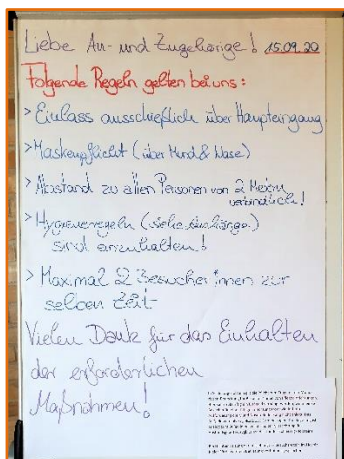 Liebe An- und Zugehörige! 15.09.20
Folgende Regeln gelten bei uns:
> Einlass ausschließlich über Haupteingang
> Maskenpflicht (über Mund & Nase)
> Abstand zu allen Personen von 2 Metern
verbindlich!
> Hygieneregeln (siehe Aushänge)
sind einzuhalten!
> Maximal 2 Besucher*innen zur
selben Zeit
Vielen Dank für das Einhalten
der erforderlichen
Maßnahmen!